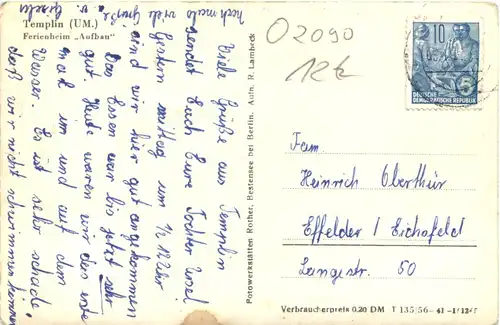 Templin (UM.)
Ferienheim „Aufbau"
Viele Grüße aus Templin
sendet Euch Eure Tochter
Gestern mittag um ½ 12 Uhr
sind wir hier gut angekommen
Das Essen war bis jetzt sehr
gut. Heute waren wir das erste
mal im und auf dem
Wasser. Es ist sehr schade
daß wir nicht schwimmen können
nochmals viele Grüße
u.
Potowerkstätten Rother, Bestensee bei Berlin. Aufn. R. Lambeck
O 2090
10
5
DEUTSCHE
DEMOKRATISCHE REPUBLIK
Fam.
Heinrich Oberthür
Effelder / Eichsfeld
Langestr. 50
Verbraucherpreis 0.20 DM T 135/56